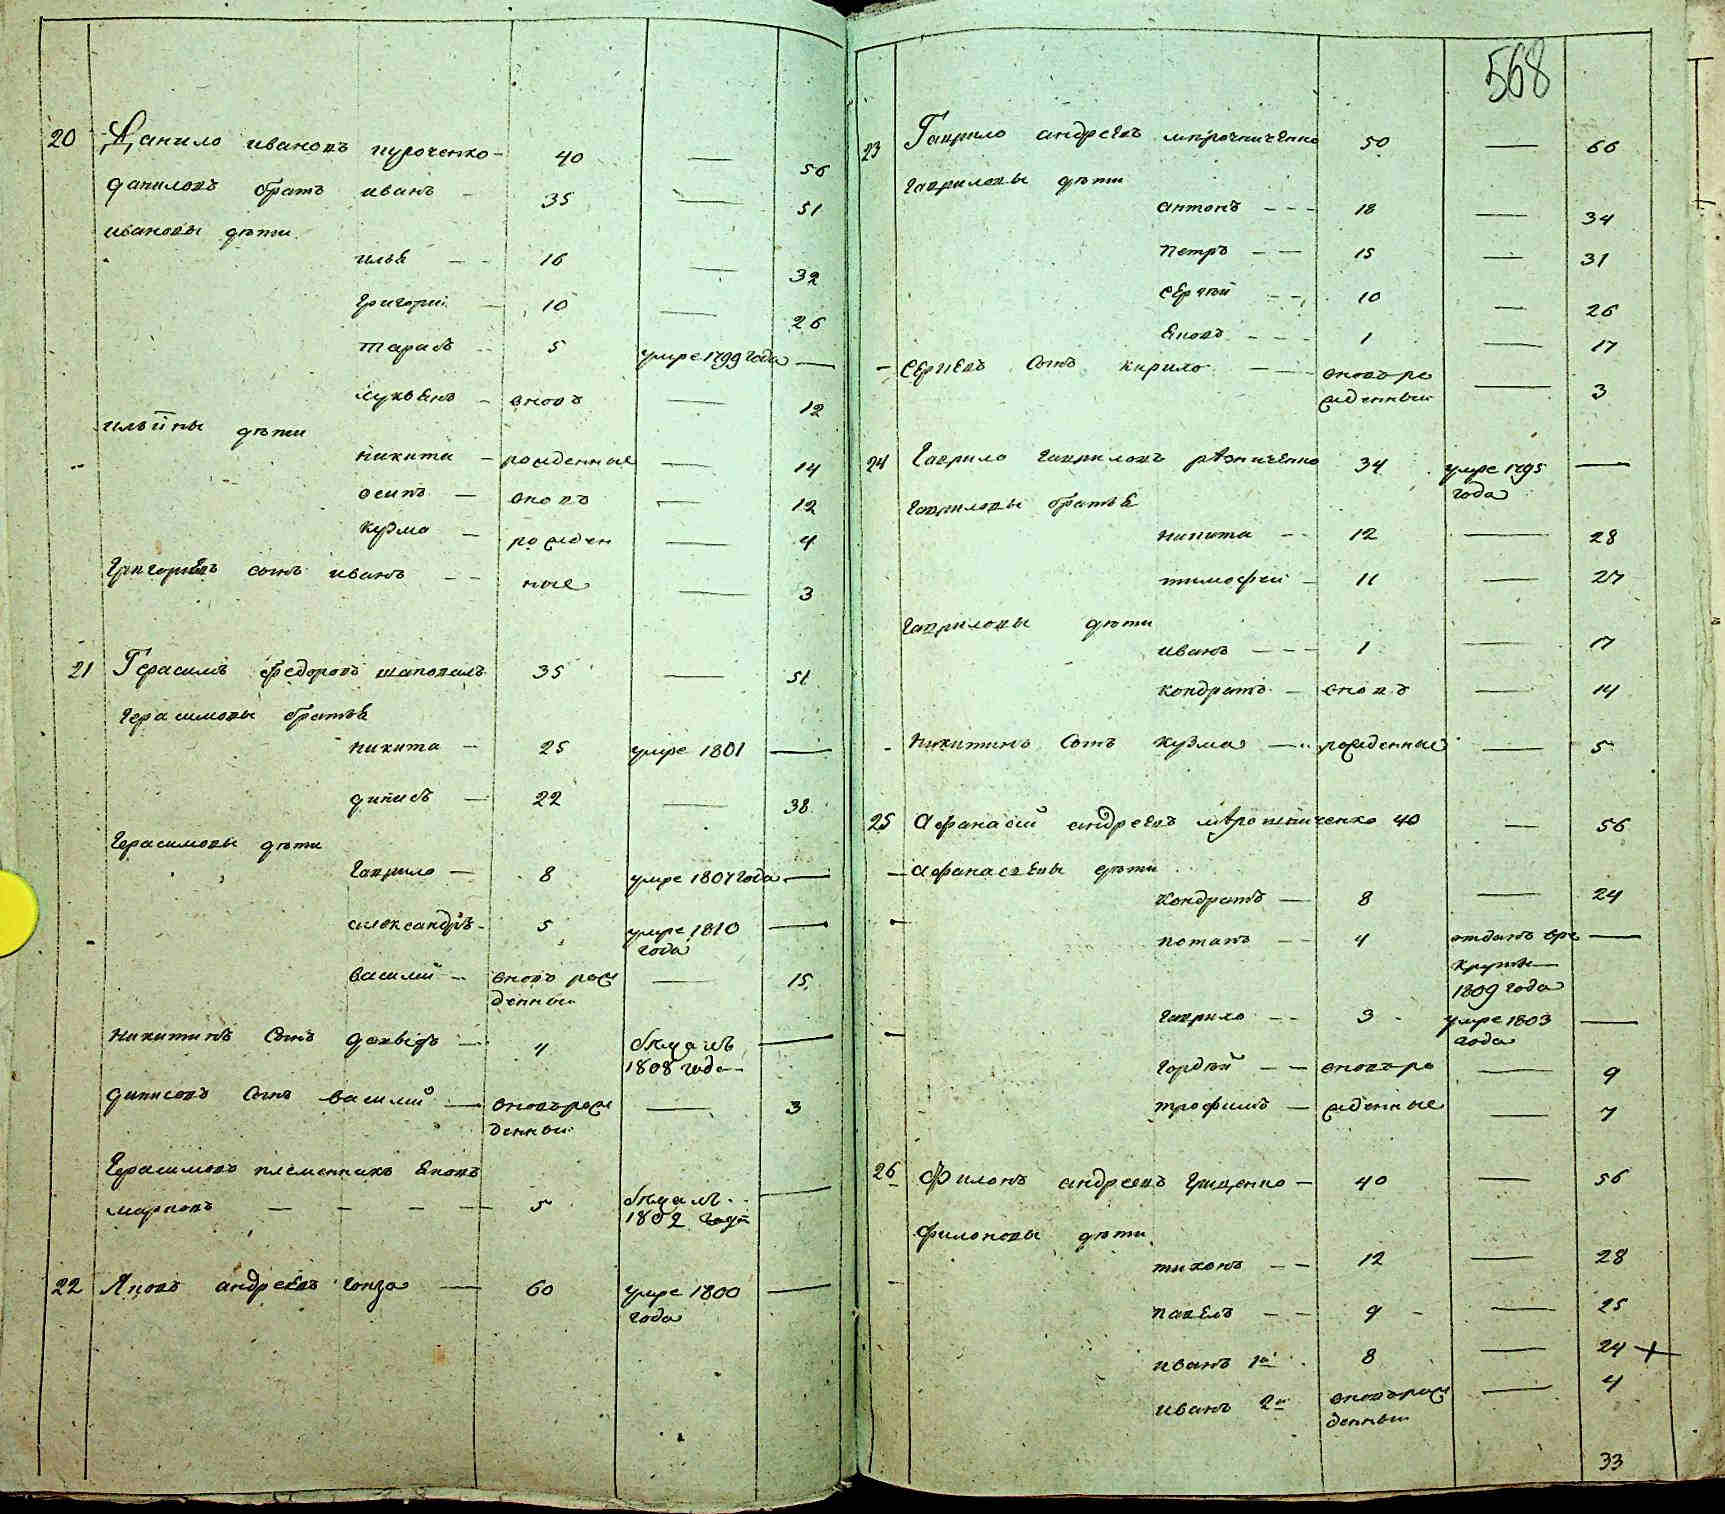 20 Данило ивановъ пуроченко 40 — 56
даниловъ братъ иванъ 35 — 51
ивановы дѣти
илья 16 — 32
григорий 10 — 26
тарасъ 5 умре 1799 года —
лукьянъ вновъ — 12
ильины дѣти
никита рожденные — 14
осипъ вновъ — 12
кузма рожден — 4
григорьевъ сынъ иванъ ные — 3
21 Герасимъ федоровъ шаповалъ 35 — 51
герасимовы братья
никита 25 умре 1801 —
динисъ 22 — 38
герасимовы дѣти
гаврило 8 умре 1807 года —
александръ 5 умре 1810 —
года
василий вновъ рож — 15
денный
никитинъ сынъ давыдъ 4 бѣжалъ —
1808 года
динисовъ сынъ василий вновърож — 3
денный
герасимовъ племенникъ яковъ
марковъ 5 бѣжалъ —
1802 года
22 Яковъ андреевъ гонза 60 умре 1800 —
года
568
23 Гаврило андреевъ 50 — 66
гавриловы дѣти
антонъ 18 — 34
петръ 15 — 31
сергѣй 10 — 26
яковъ 1 — 17
сергиевъ сынъ кирило вновъ ро — 3
жденный
24 гаврило гавриловъ резниченко 34 умре 1795 —
года
гавриловы братья
никита 12 — 28
тимофей 11 — 27
гавриловы дѣти
иванъ 1 — 17
кондратъ вновъ — 14
никитинъ сынъ кузма рожденные — 5
25 афанасий андреевъ мѣрошниченко 40 — 56
афанасьевы дѣти
кондратъ 8 — 24
потапъ 4 отданъ врекруты —
1809 года
гаврило 3 умре 1803 —
года
гордѣй вновъ ро — 9
трофимъ жденные — 7
26 Филонъ андреевъ грищенко 40 — 56
филоновы дѣти
тихонъ 12 — 28
павелъ 9 — 25
иванъ 1й 8 — 24 +
иванъ 2й вновърож — 4
денный
33